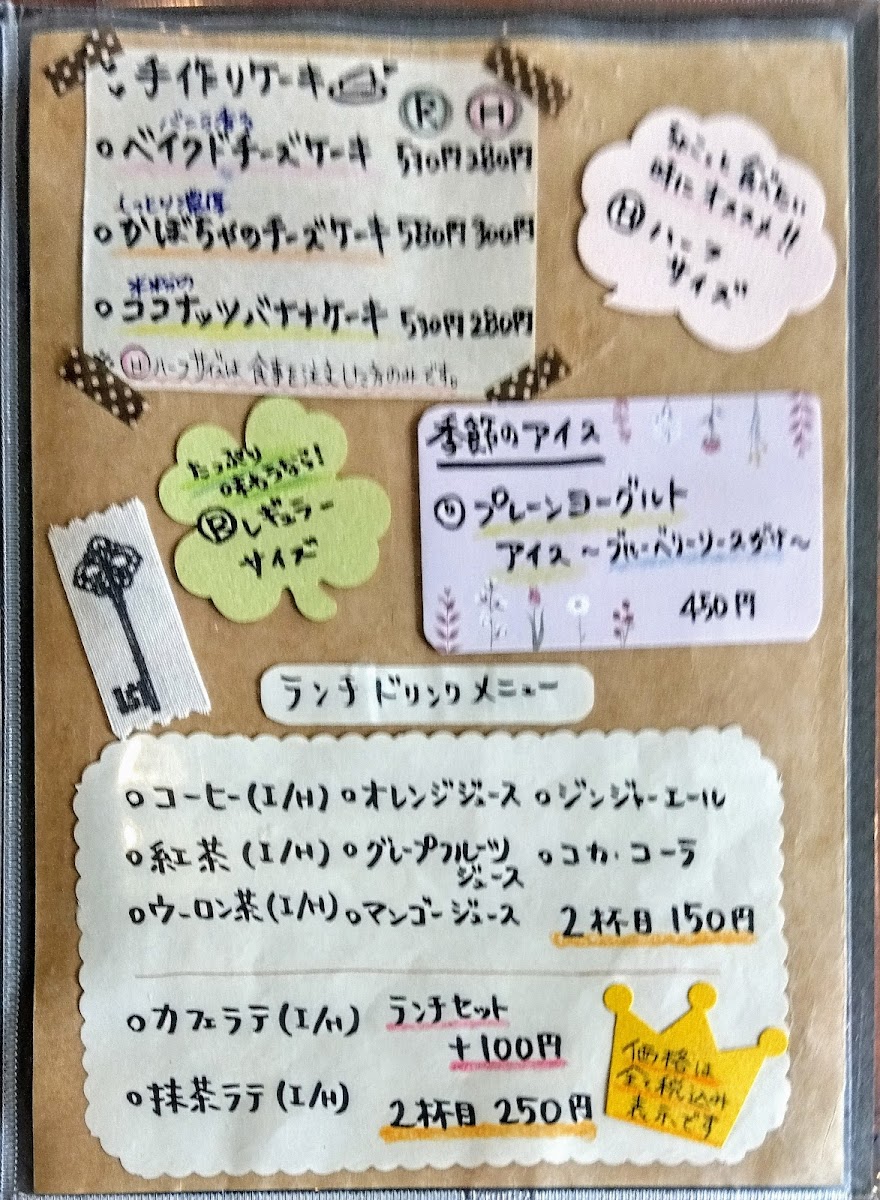 手作りケーキ
Ⓡ Ⓗ
バニラ香る
○ベイクドチーズケーキ 530円 280円
しっとり濃厚
○かぼちゃのチーズケーキ 580円 300円
米粉の
○ココナッツバナナケーキ 530円 280円
Ⓗハーフサイズは食事を注文した方のみです。
ちょこっと食べたい
時にオススメ!!
Ⓗハーフ
サイズ
たっぷり
味わうなら!
Ⓡレギュラー
サイズ
季節のアイス
プレーンヨーグルト
アイス~ブルーベリーソースがけ~
450円
ランチドリンクメニュー
○コーヒー(I/H) ○オレンジジュース ○ジンジャーエール
○紅茶(I/H) ○グレープフルーツ ○コカ・コーラ
ジュース
○ウーロン茶(I/H) ○マンゴージュース 2杯目 150円
○カフェラテ(I/H) ランチセット
+100円
○抹茶ラテ(I/H) 2杯目 250円
価格は
全て税込み
表示です